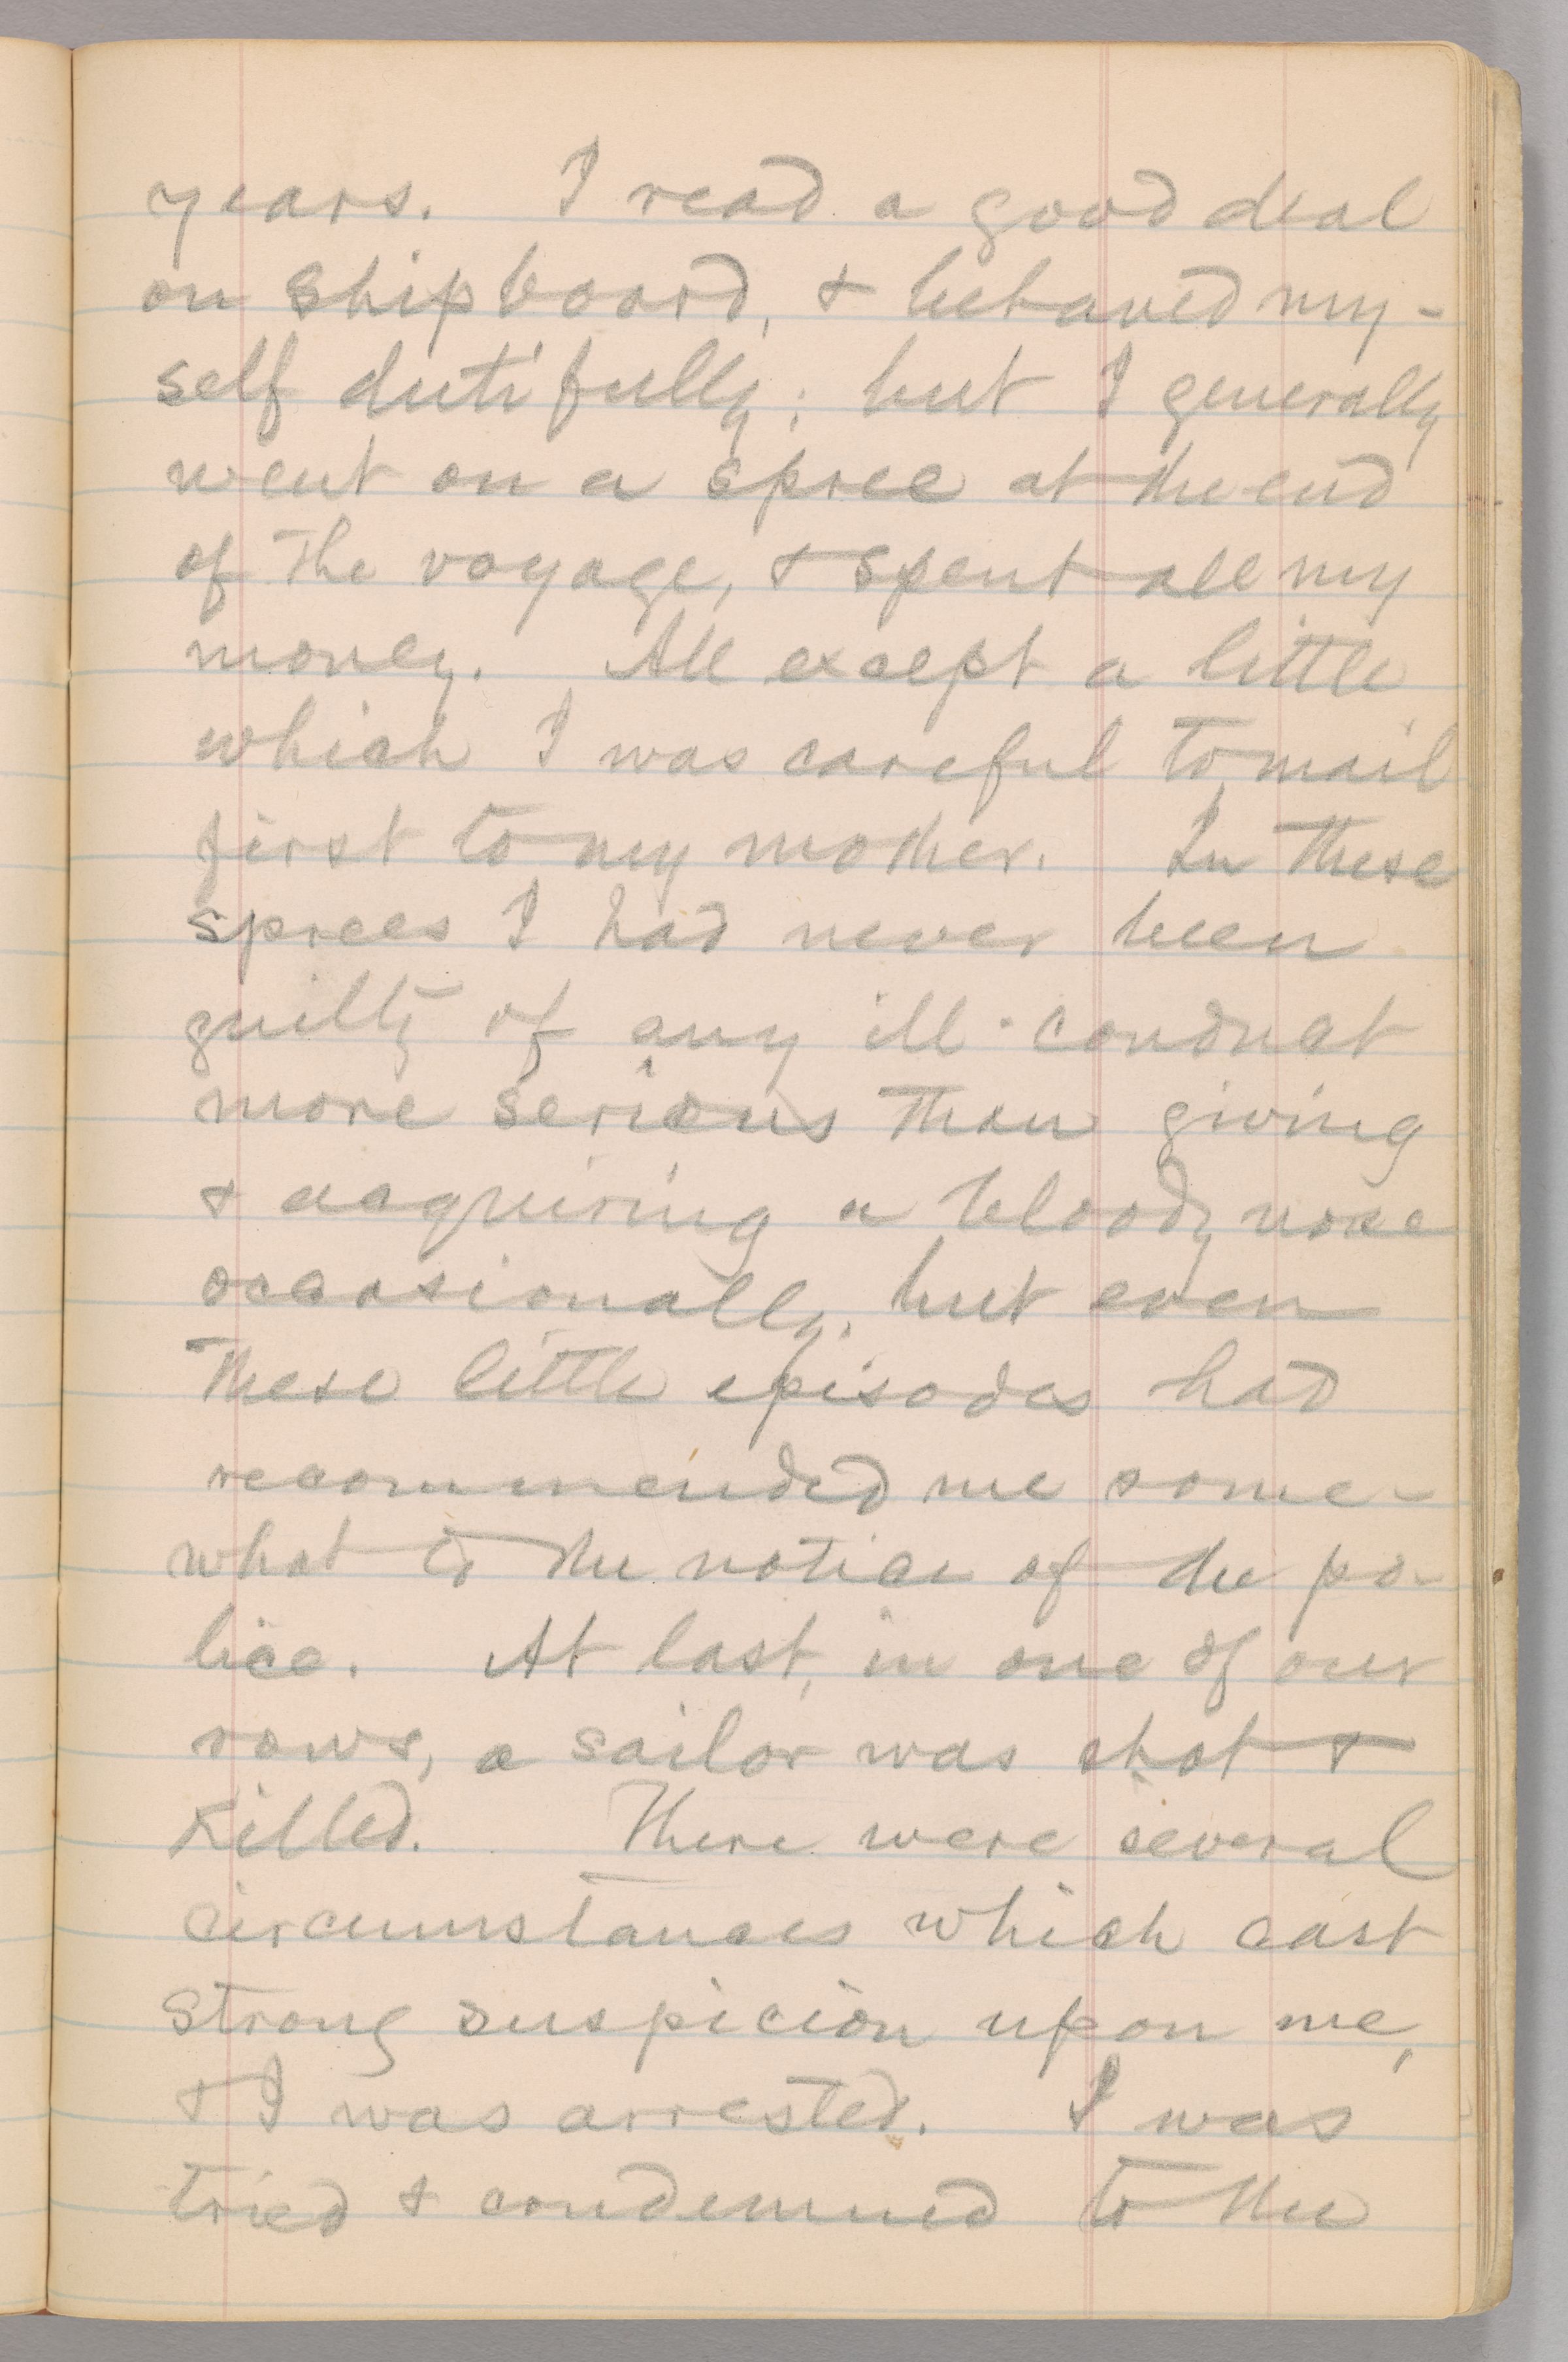 years. I read a good deal
on shipboard, & behaved my-
self dutifully; but I generally
went on a spree at the end
of the voyage, & spent all my
money. All except a little
which I was careful to mail
first to my mother. In these
sprees I had never been
guilty of any ill-conduct
more serious than giving
& acquiring a bloody nose
occasionally, but even
these little episodes had
recommended me some-
what to the notice of the po-
lice. At last, in one of our
rows, a sailor was shot &
killed. There were several
circumstances which cast
strong suspicion upon me,
& I was arrested. I was
tried & condemned to the